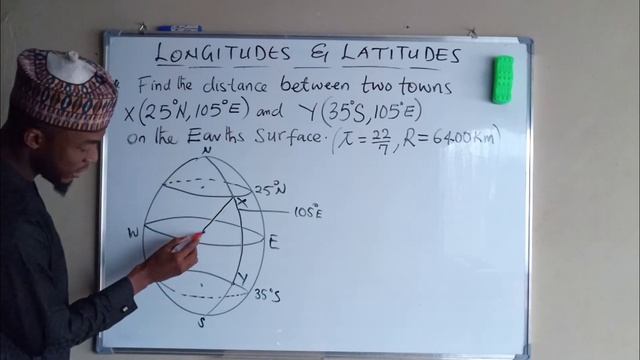 LONGITUDES & LATITUDES
Find the distance between two towns
X(25°N, 105°E) and Y(35°S, 105°E)
on the Earths Surface. (π = 22/7, R = 6400Km)
N
25°N
X
105°E
W
E
Y
35°S
S